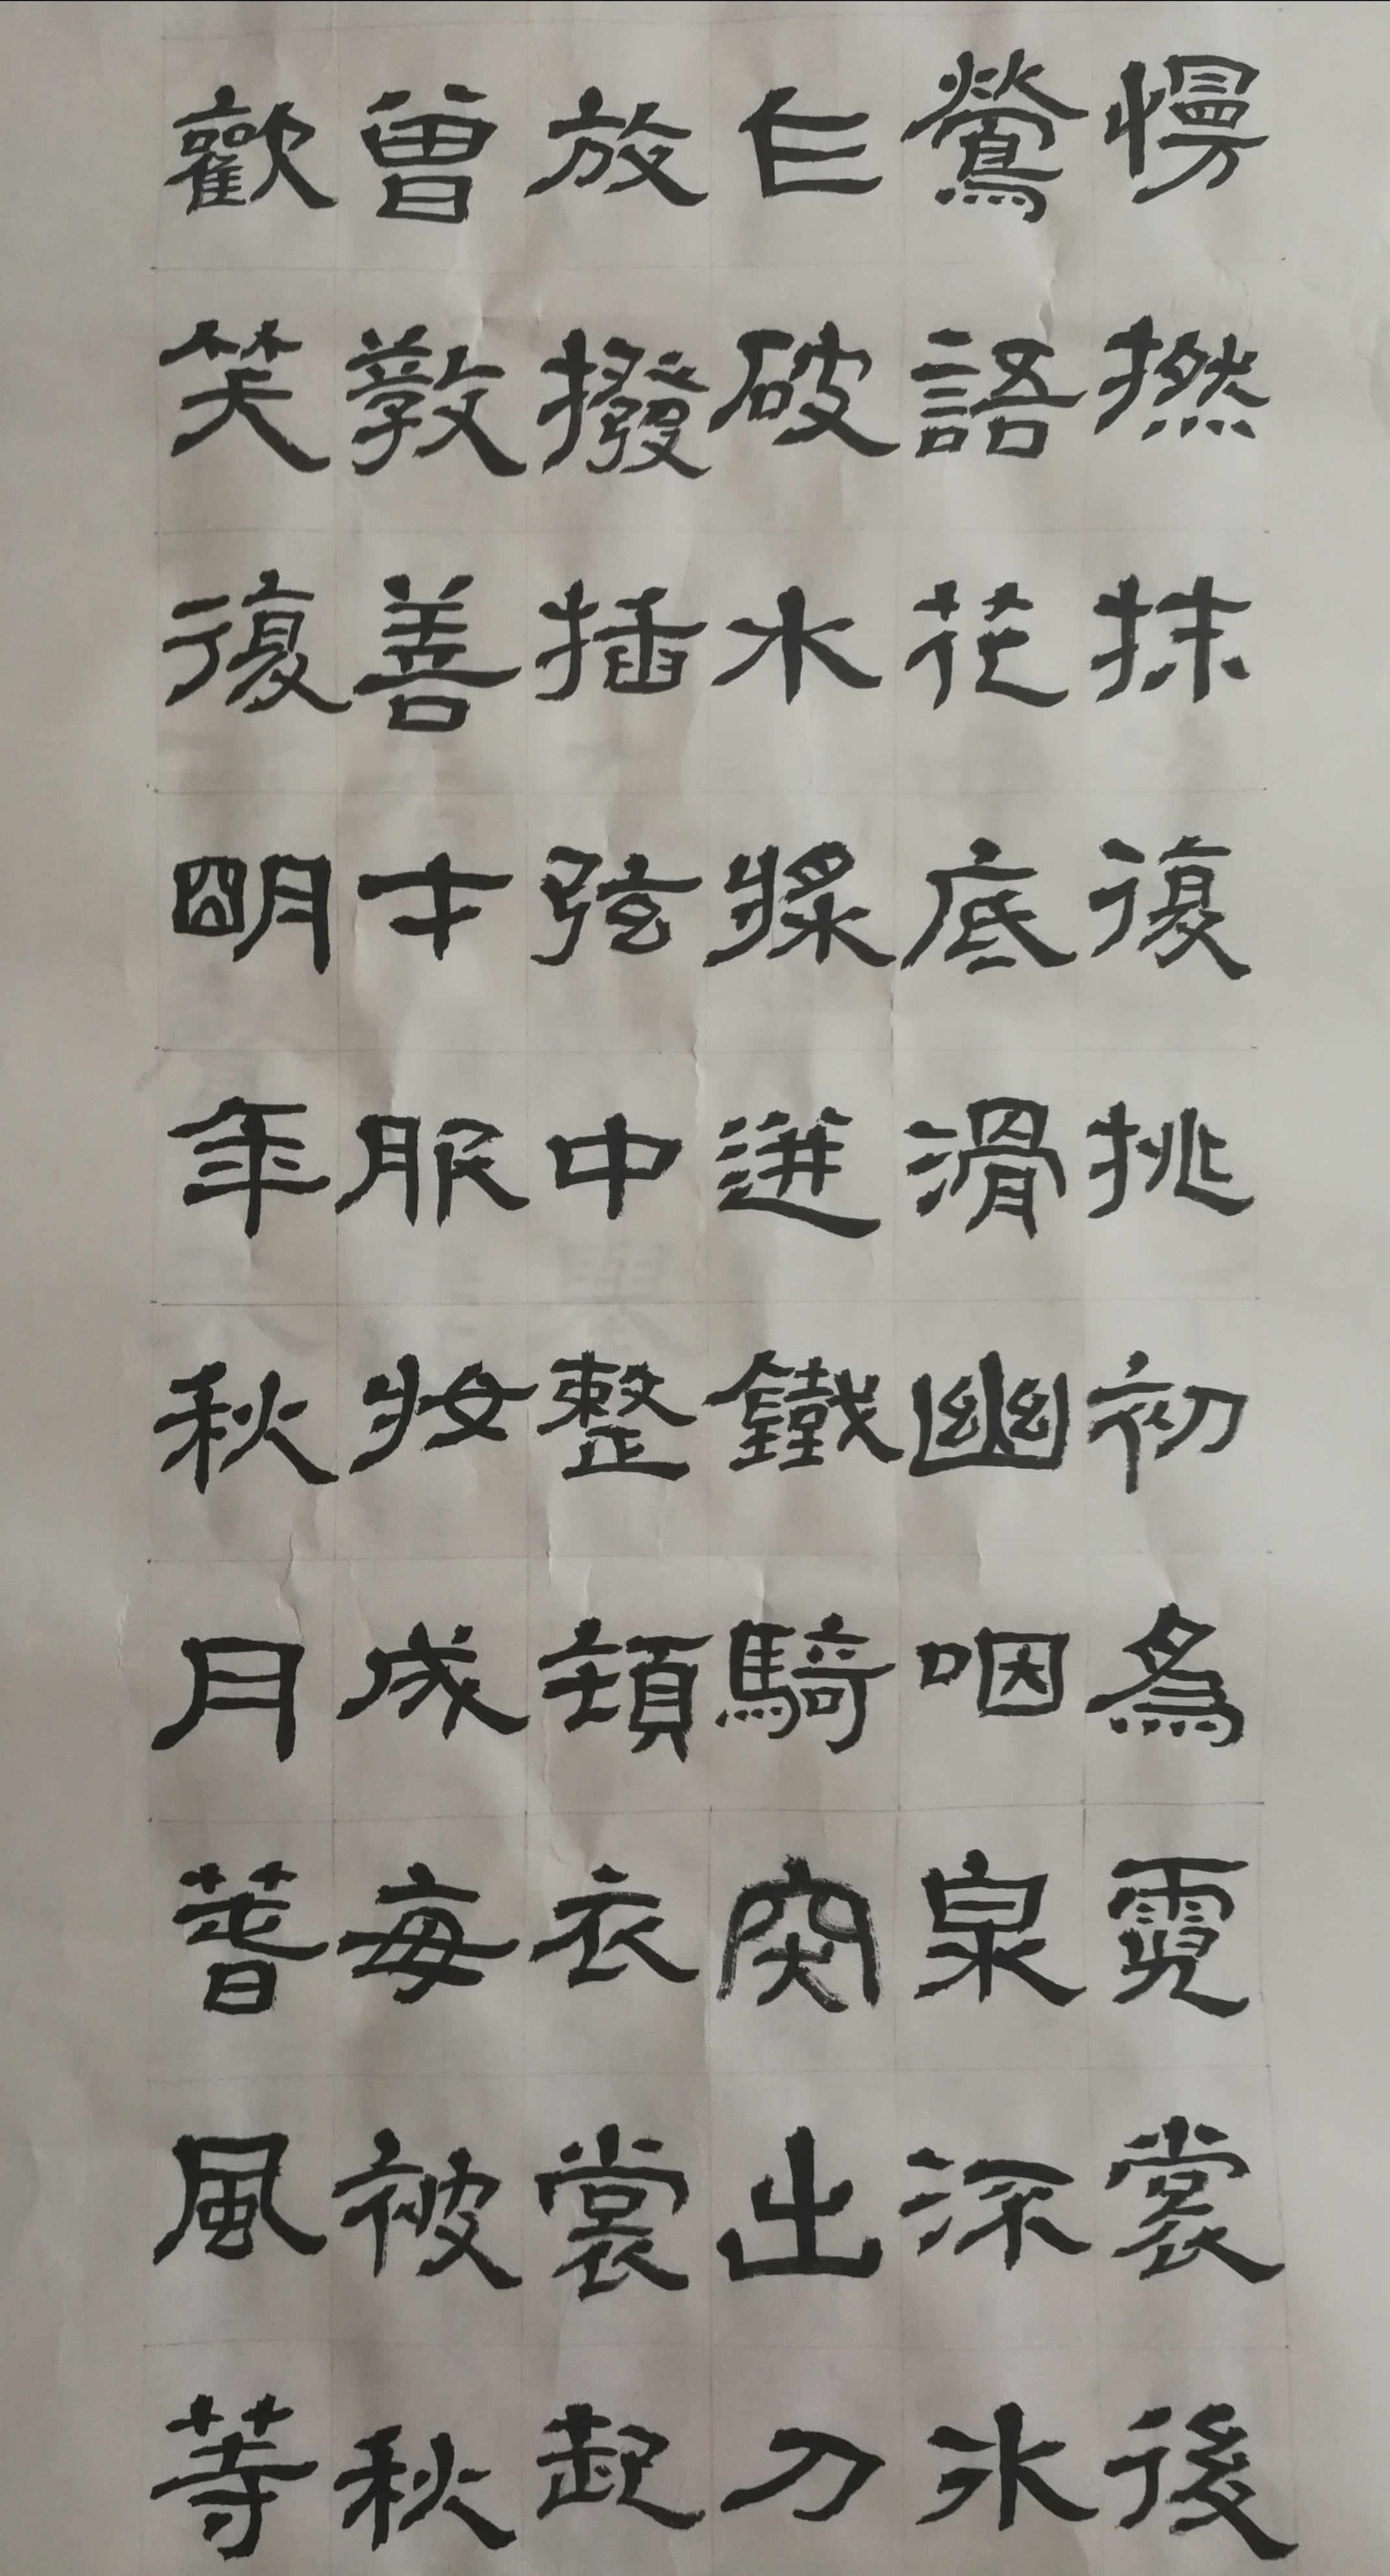 慢撚抹復挑初為霓裳後
鶯語花底滑幽咽泉流冰
乍破水漿迸鐵騎突出刀
放撥插弦中整頓衣裳起
曾教善才服妝成每被秋
歡笑復明年秋月春風等